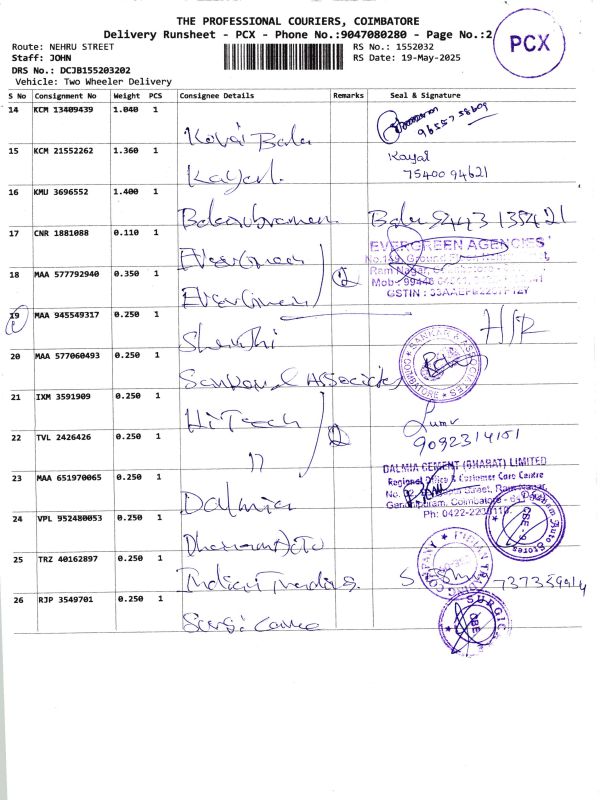 THE PROFESSIONAL COURIERS, COIMBATORE
Delivery Runsheet - PCX - Phone No.:9047080280 - Page No.:2
PCX
Route: NEHRU STREET
Staff: JOHN
DRS No.: DCJB155203202
Vehicle: Two Wheeler Delivery
RS No.: 1552032
RS Date: 19-May-2025
S No Consignment No Weight PCS Consignee Details Remarks Seal & Signature
14 KCM 13409439 1.040 1
Kovai Bala
15 KCM 21552262 1.360 1 Kayal
75400 94621
Kayal
16 KMU 3696552 1.400 1
Balasubramani Bala 94431 35421
17 CNR 1881088 0.110 1
Evergreen
EVERGREEN AGENCIES
Ram Nagar,
18 MAA 577792940 0.350 1 2
Evergreen
GSTIN : 33
19 MAA 945549317 0.250 1
Shanthi
20 MAA 577060493 0.250 1
Sankar & Associates
SANKAR & ASSOCIATES
COIMBATORE
21 IXM 3591909 0.250 1
Hi Tech
22 TVL 2426426 0.250 1 2
9092314151
23 MAA 651970065 0.250 1
Dalmia
DALMIA CEMENT (BHARAT) LIMITED
Regional Office & Customer Care Centre
Gandhipuram, Coimbatore
24 VPL 952480053 0.250 1
Auto Stores
CBE
25 TRZ 40162897 0.250 1
Indian Trading
INDIAN TRADING COMPANY
26 RJP 3549701 0.250 1
Surgi Care
SURGIC
CBE